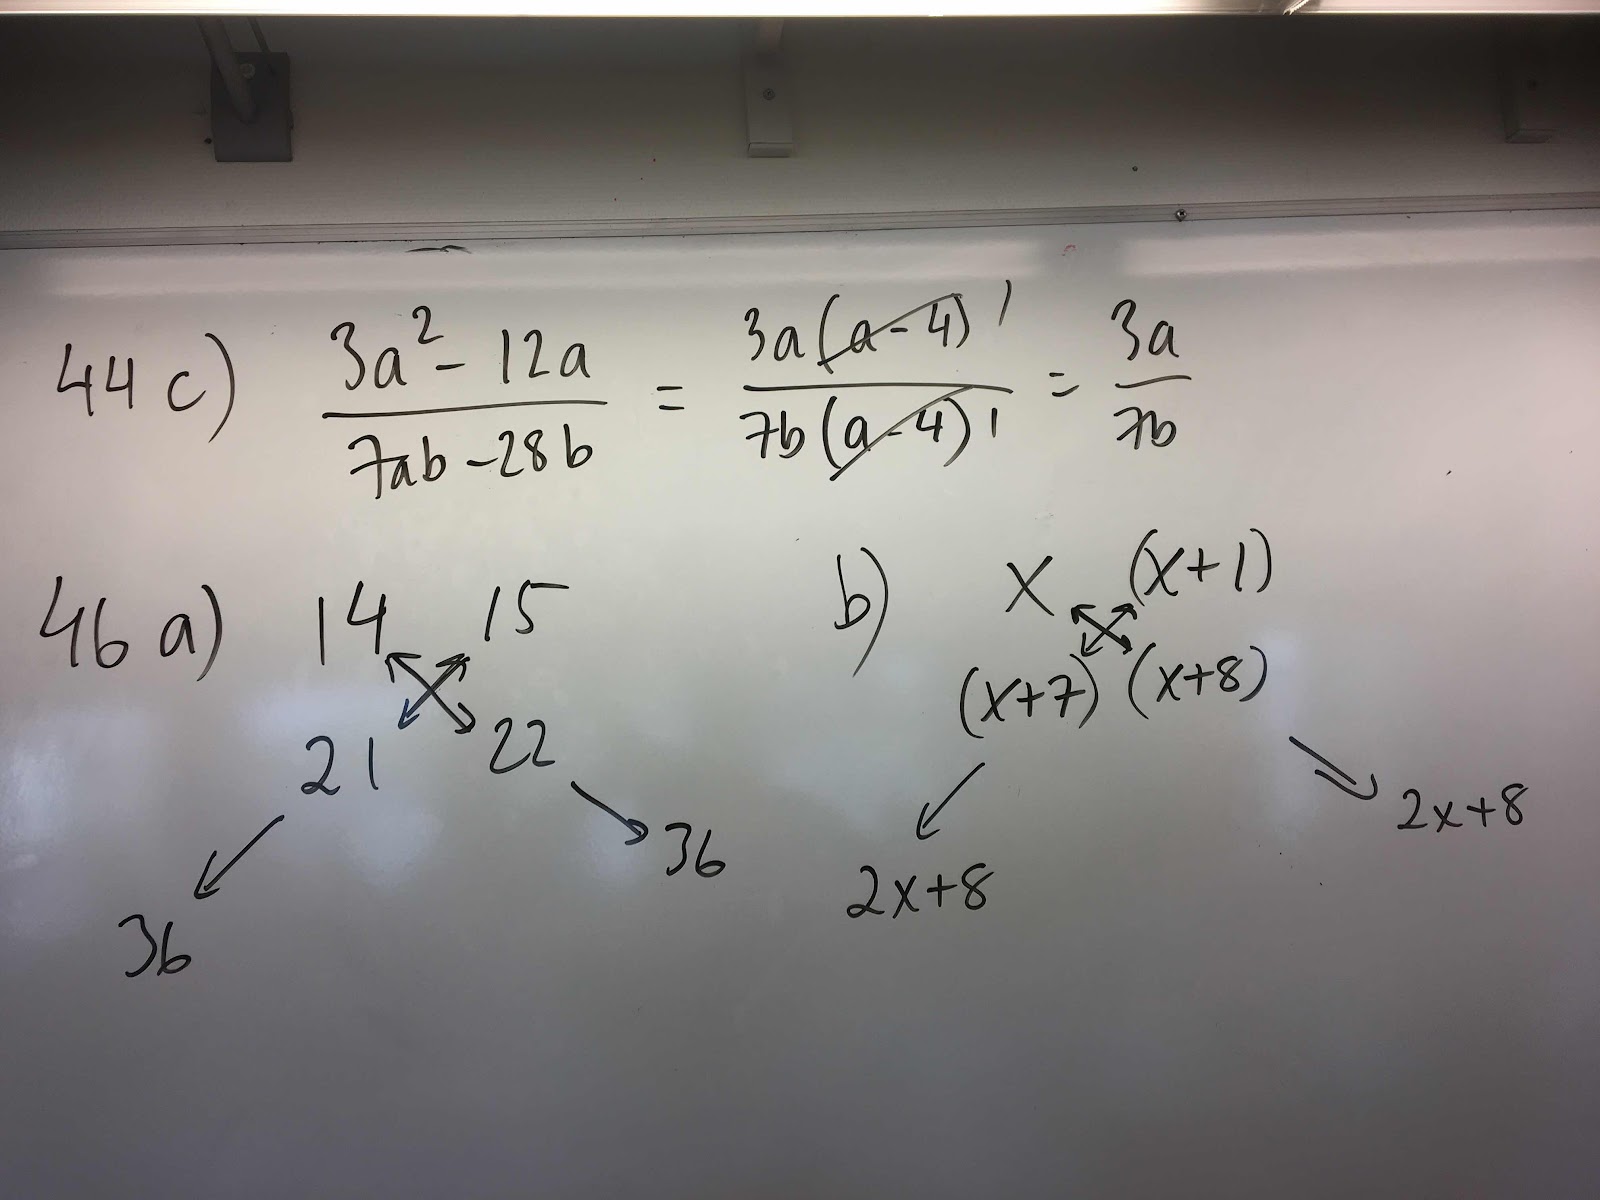 44 c) 3a² - 12a / 7ab - 28b = 3a(a - 4) 1 / 7b(a - 4) 1 = 3a / 7b
46 a) 14 15
21 22
36 36
b) x (x+1)
(x+7) (x+8)
2x+8 2x+8